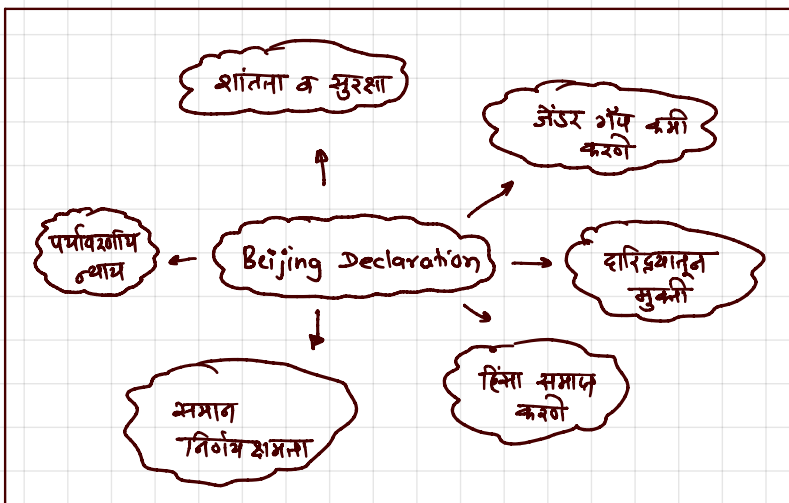 शांतता व सुरक्षा
जेंडर गॅप कमी
करणे
पर्यावरणीय
न्याय
Beijing Declaration
दारिद्र्यातून
मुक्ती
हिंसा समाप्त
करणे
समान
निर्णयक्षमता